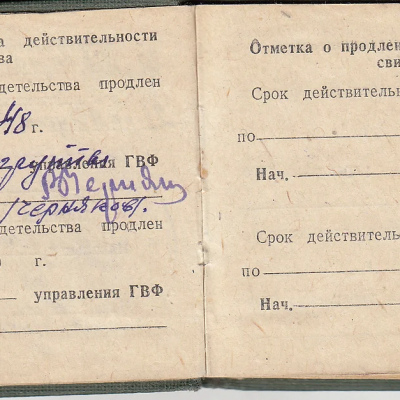 а действительности
ва
детельства продлен
48 г.
группы
управления ГВФ
/Черняков/.
детельства продлен
г.
управления ГВФ
Отметка о продлен
сви
Срок действител
по
Нач.
Срок действитель
по
Нач.